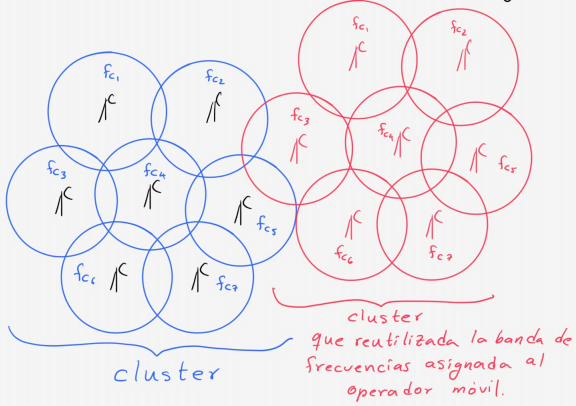 fc1
fc2
fc3
fc4
fc5
fc6
fc7
cluster
fc1
fc2
fc3
fc4
fc5
fc6
fc7
cluster
que reutilizada la banda de
frecuencias asignada al
operador móvil.